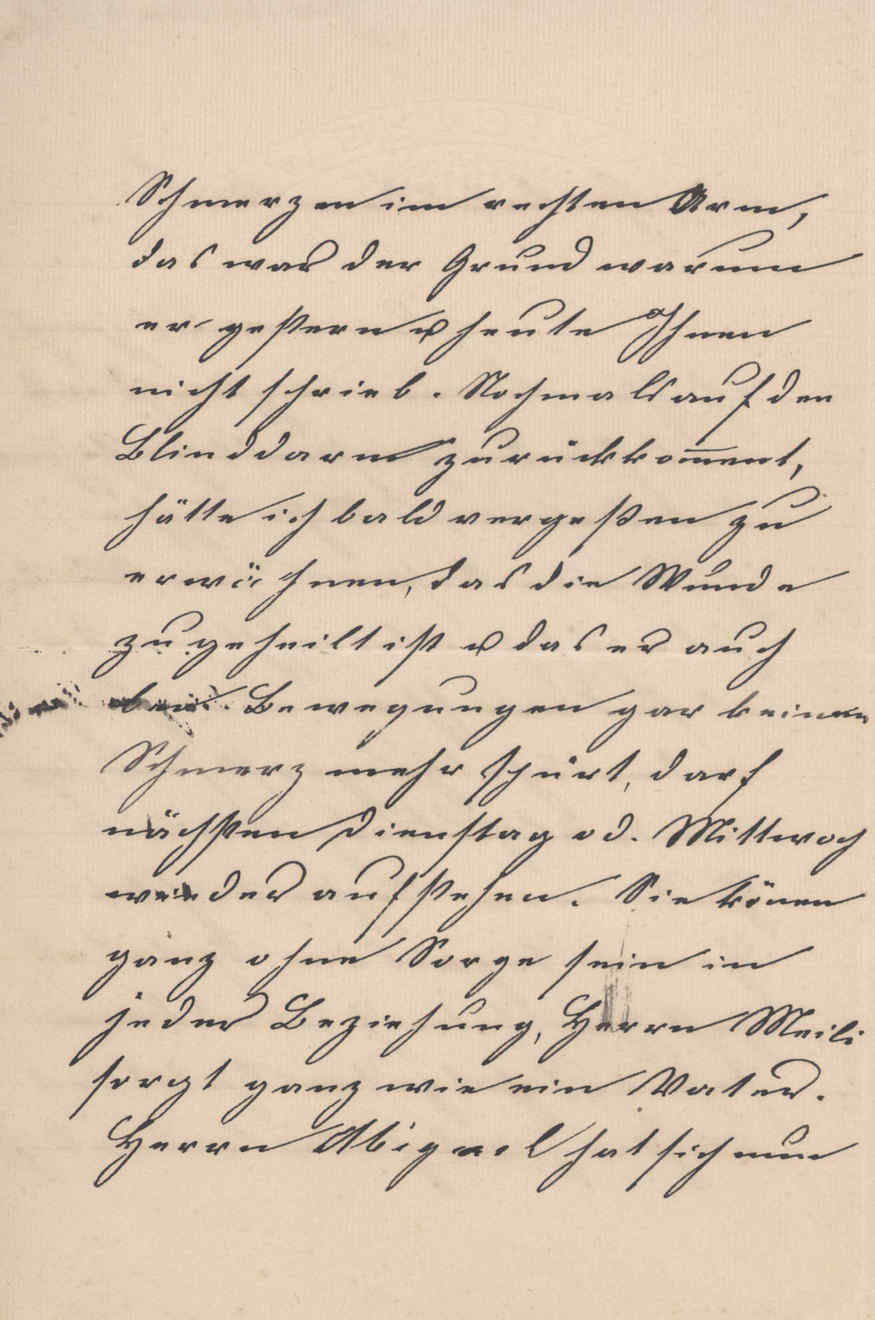 Schmerzen im rechten Arm,
das war der Grund warum
er gestern u heute Ihnen
nicht schrieb. Nochmals auf den
Blinddarm zurückkomment,
hätte ich bald vergeßen zu
erwähnen, das die Wunde
zugeheilt ist u das er auch
bei Bewegungen gar keinen
Schmerz mehr spürt, darf
nächsten Dienstag od. Mittwoch
wieder aufstehen. Sie könen
ganz ohne Sorge sein in
jeder Beziehung, Herrn Meili
sorgt ganz wie ein Vater.
Herrn hat sich nun